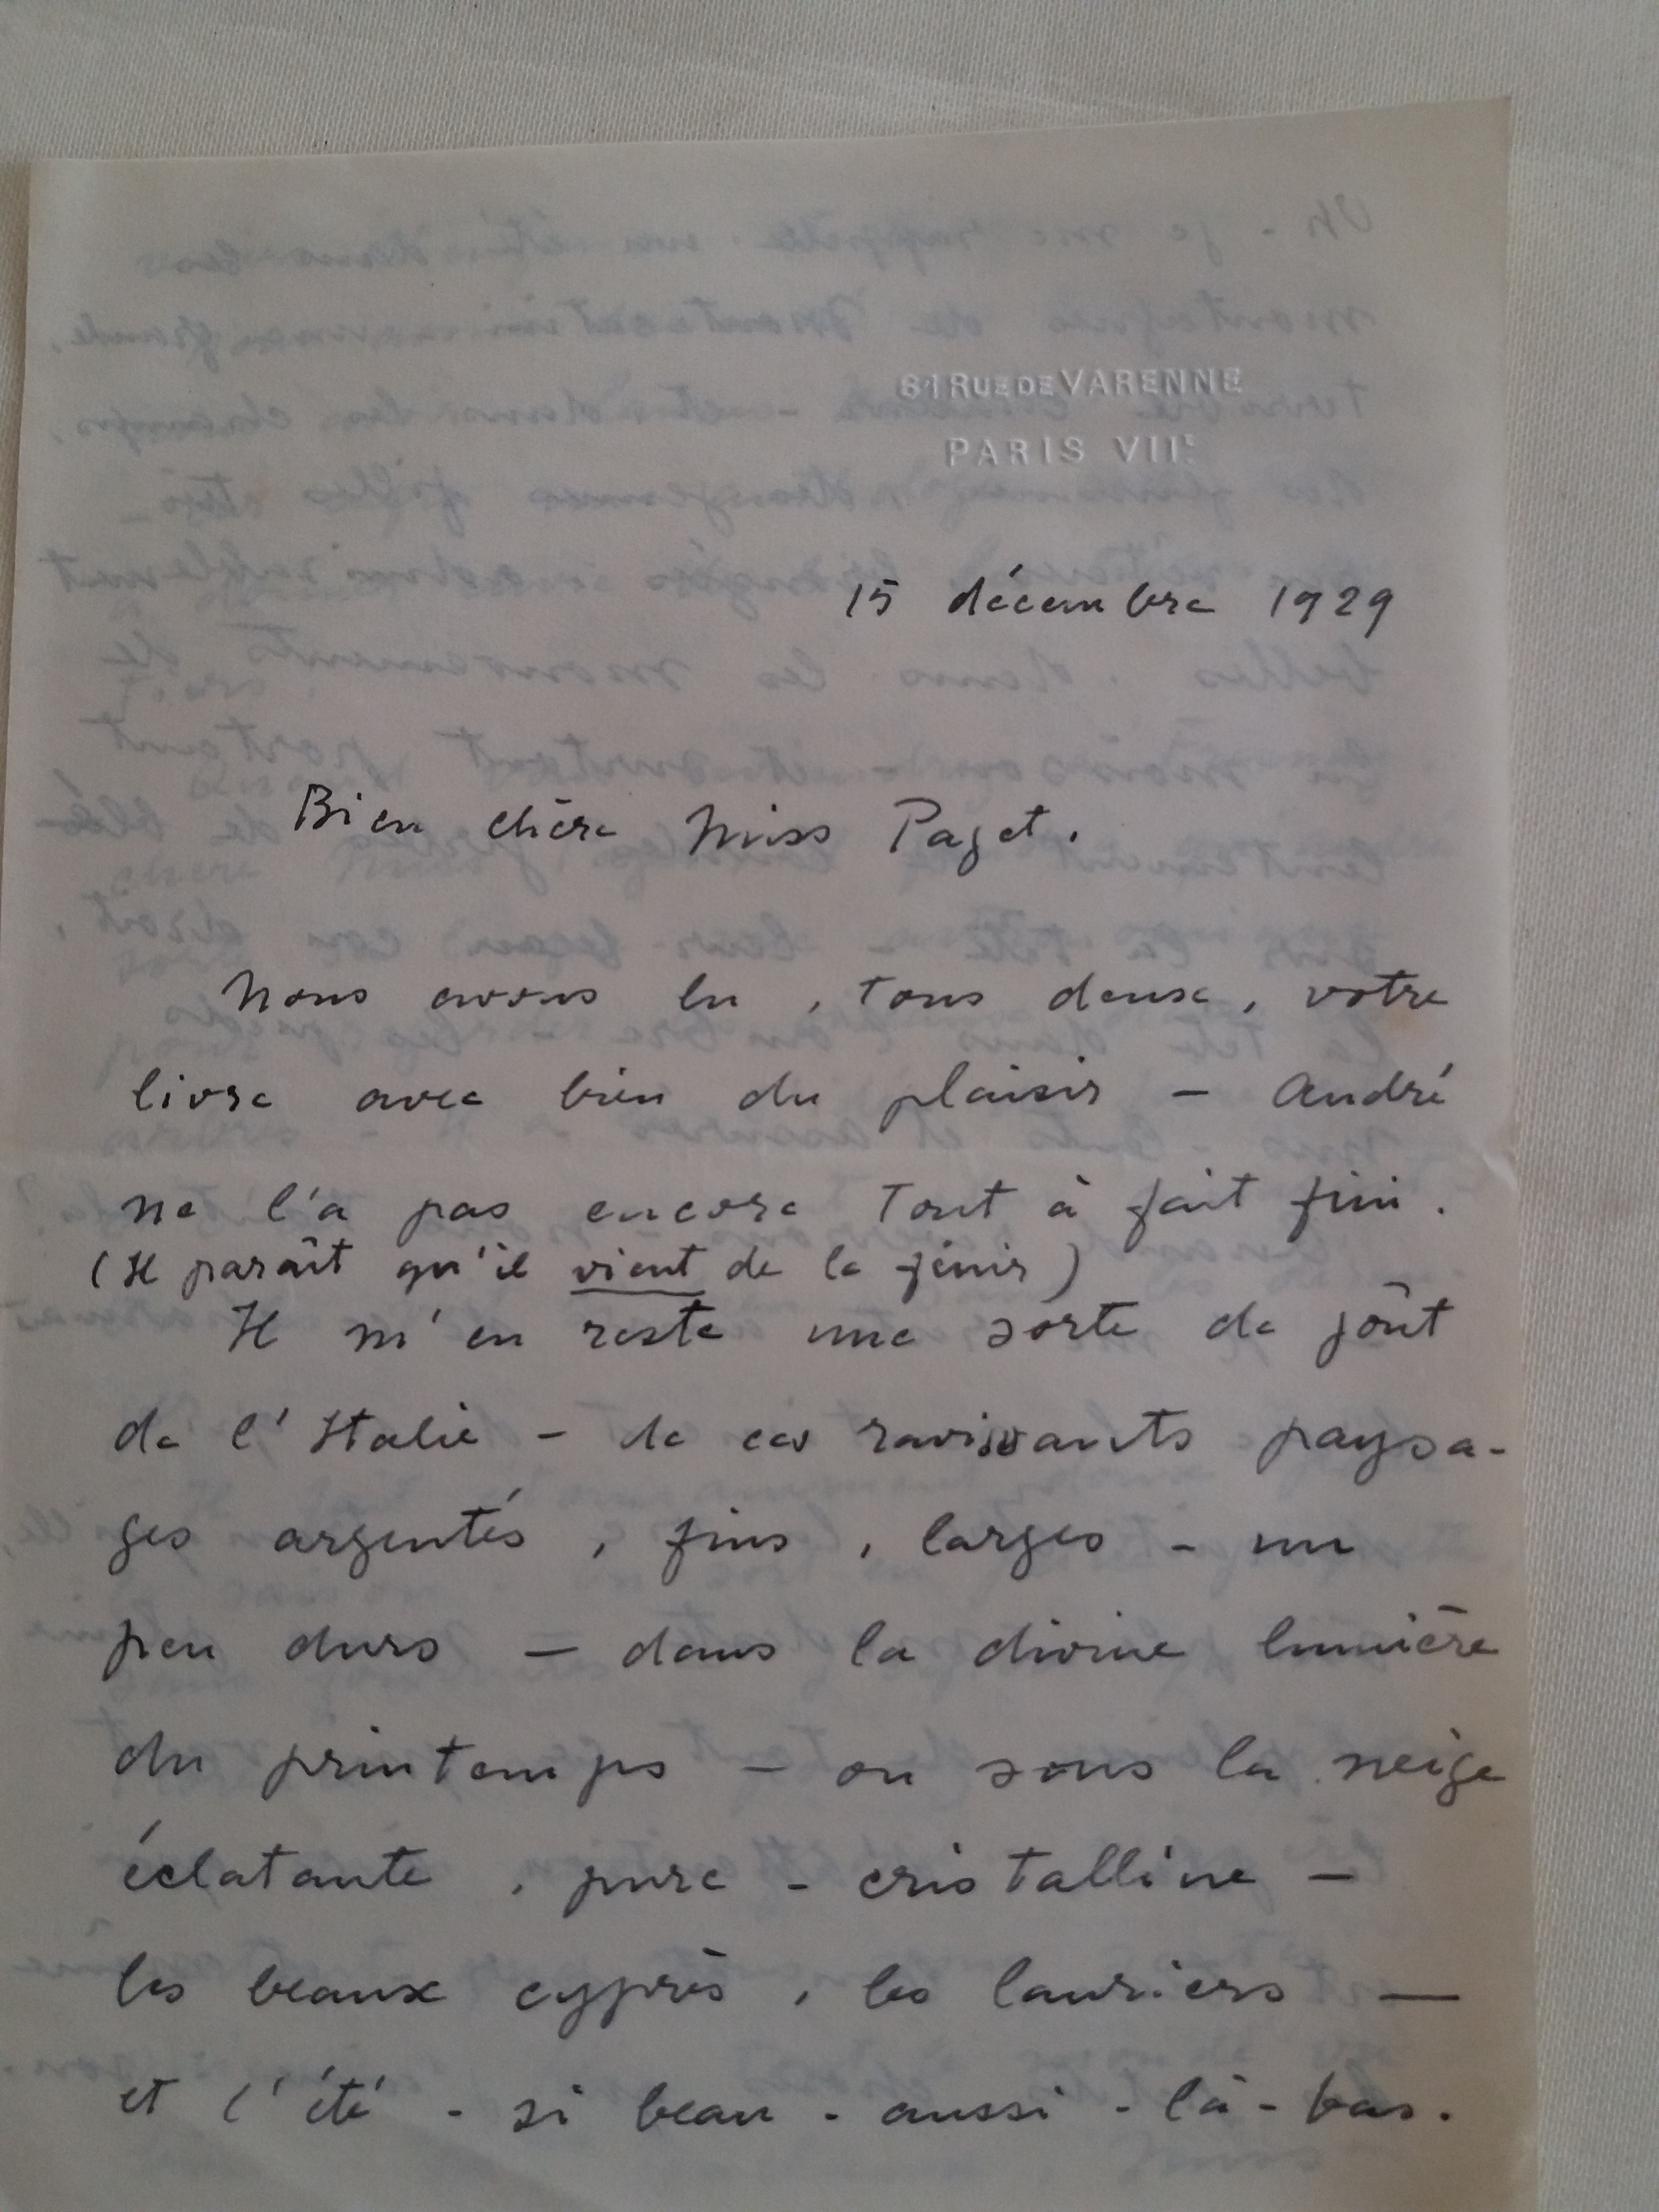 61 RUE DE VARENNE
PARIS VIIE
15 décembre 1929
Bien chère Miss Paget.
Nous avons lu, tous deux, votre
livre avec bien du plaisir — André
ne l'a pas encore tout à fait fini.
(Il paraît qu'il vient de le finir)
Il m'en reste une sorte de goût
de l'Italie - de ces ravissants paysa-
ges argentés, fins, larges - un
peu durs — dans la divine lumière
du printemps — ou sous la neige
éclatante, pure - cristalline —
les beaux cyprès, les lauriers —
et l'été - si beau - aussi - là-bas.